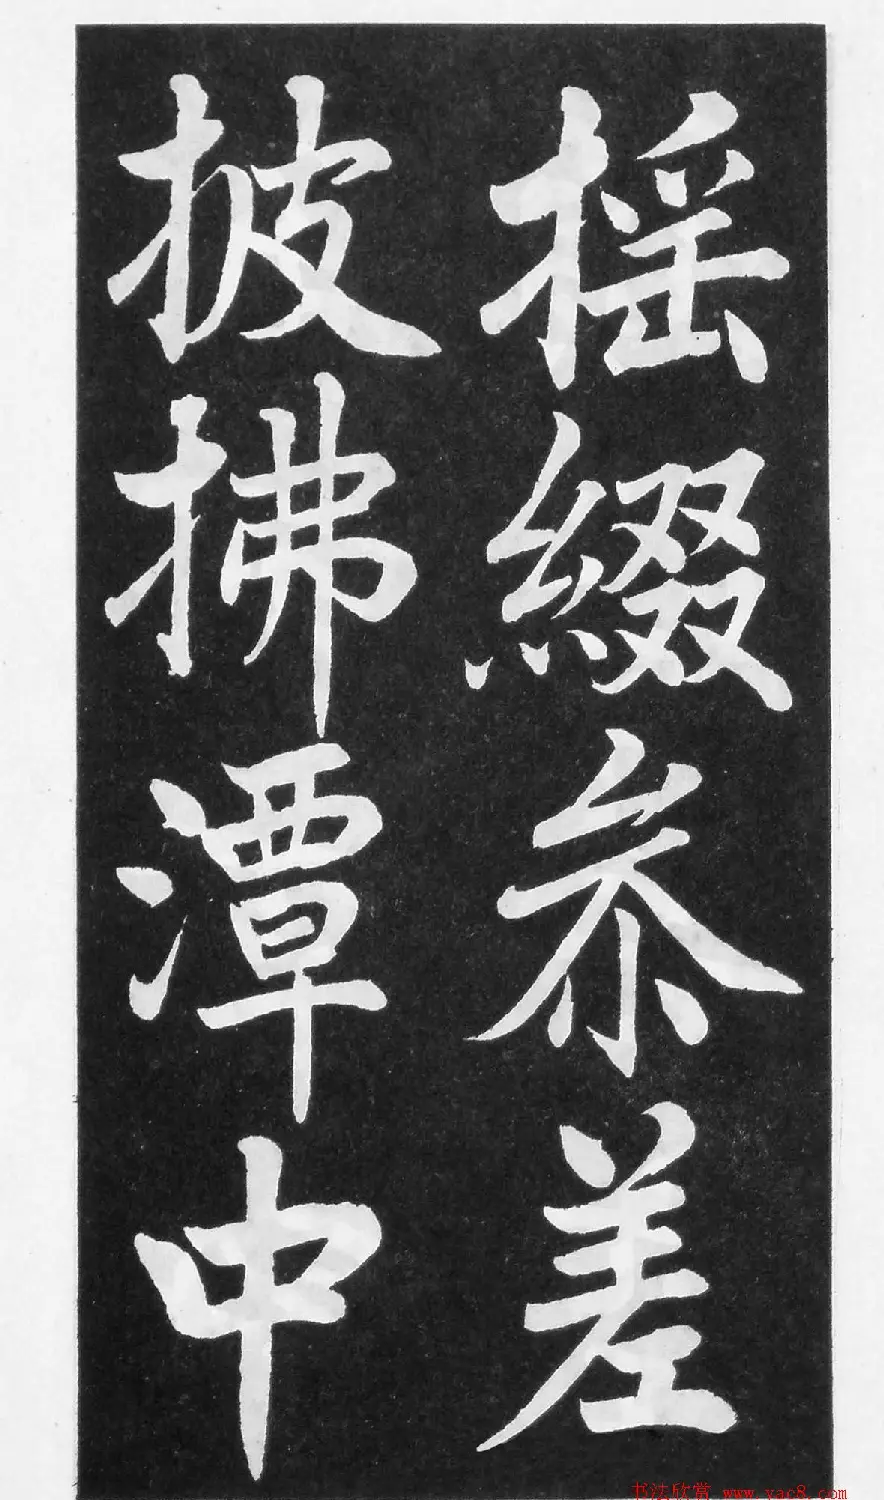 摇綴参差
披拂潭中
书法欣赏 www.xac8.com